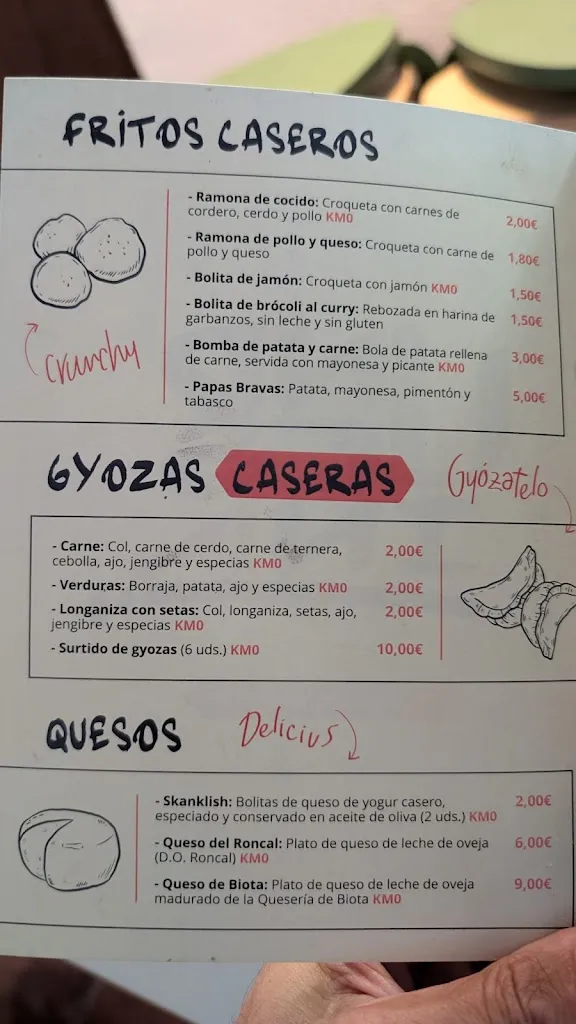 FRITOS CASEROS
- Ramona de cocido: Croqueta con carnes de
cordero, cerdo y pollo KM0
2,00€
- Ramona de pollo y queso: Croqueta con carne de
pollo y queso
1,80€
- Bolita de jamón: Croqueta con jamón KM0
1,50€
- Bolita de brócoli al curry: Rebozada en harina de
garbanzos, sin leche y sin gluten
1,50€
- Bomba de patata y carne: Bola de patata rellena
de carne, servida con mayonesa y picante KM0
3,00€
- Papas Bravas: Patata, mayonesa, pimentón y
tabasco
5,00€
Crunchy
GYOZAS CASERAS
Gyózatelo
- Carne: Col, carne de cerdo, carne de ternera,
cebolla, ajo, jengibre y especias KM0
2,00€
- Verduras: Borraja, patata, ajo y especias KM0
2,00€
- Longaniza con setas: Col, longaniza, setas, ajo,
jengibre y especias KM0
2,00€
- Surtido de gyozas (6 uds.) KM0
10,00€
QUESOS
Delicius
- Skanklish: Bolitas de queso de yogur casero,
especiado y conservado en aceite de oliva (2 uds.) KM0
2,00€
- Queso del Roncal: Plato de queso de leche de oveja
(D.O. Roncal) KM0
6,00€
- Queso de Biota: Plato de queso de leche de oveja
madurado de la Quesería de Biota KM0
9,00€